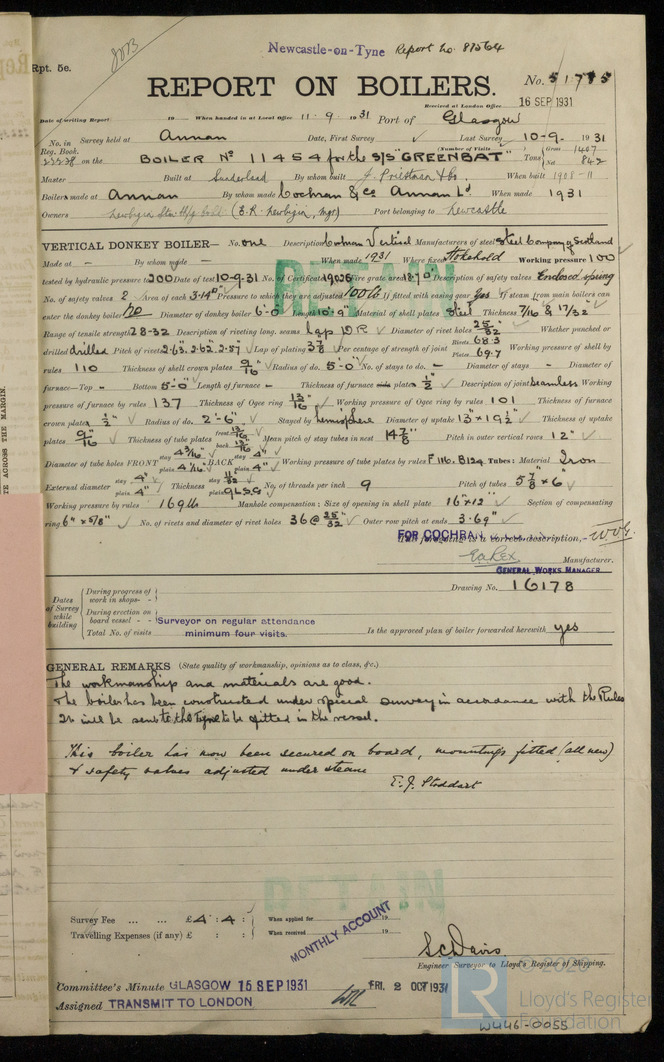 Newcastle-on-Tyne Report No. 87564
Rpt. 5e.
REPORT ON BOILERS.
No. 51775
Received at London Office 16 SEP 1931
Date of writing Report 19 When handed in at Local Office 11-9-1931 Port of Glasgow
No. in Survey held at Annan Date, First Survey Last Survey 10-9-1931
Reg. Book. (Number of Visits Gross 1407
on the BOILER No 11454 for the S/S "GREENBAT" Tons Net 842
Master Built at Sunderland By whom built J. Priestman & Co. When built 1908-11
Boilers made at Annan By whom made Cochran & Co Annan Ld When made 1931
Owners Newbigin Stm Shpg Co Ld (E.R. Newbigin, Mgr) Port belonging to Newcastle
VERTICAL DONKEY BOILER— No. one Description Cochran Vertical Manufacturers of steel Steel Company of Scotland
Made at - By whom made - When made 1931 Where fixed Stokehold Working pressure 100
tested by hydraulic pressure to 200 Date of test 10-9-31 No. of Certificate 19026 Fire grate area 18.7 Description of safety valves Enclosed spring
No. of safety valves 2 Area of each 3.14 Pressure to which they are adjusted 100 lb If fitted with easing gear Yes If steam from main boilers can
enter the donkey boiler No Diameter of donkey boiler 6'-0" Length 10'-9" Material of shell plates Steel Thickness 7/16 & 17/32"
Range of tensile strength 28-32 Description of riveting long. seams Lap D.R. Diameter of rivet holes 25/32" Whether punched or
drilled drilled Pitch of rivets 2.63" 2.62" 2.57" Lap of plating 3 7/8 Per centage of strength of joint Rivets 68.3 Plates 69.7 Working pressure of shell by
rules 110 Thickness of shell crown plates 9/16" Radius of do. 5'-0" No. of stays to do. - Diameter of stays - Diameter of
furnace—Top - Bottom 5'-0" Length of furnace - Thickness of furnace plates 1/2" Description of joint Seamless Working
pressure of furnace by rules 137 Thickness of Ogee ring 13/16" Working pressure of Ogee ring by rules 101 Thickness of furnace
crown plates 1/2" Radius of do. 2'-6" Stayed by hemisphere Diameter of uptake 13" x 19 1/2" Thickness of uptake
plates 9/16" Thickness of tube plates front 13/16" back 13/16" Mean pitch of stay tubes in nest 14 7/8" Pitch in outer vertical rows 12"
Diameter of tube holes FRONT stay 4 3/16" plain 4 1/16" BACK stay 4" plain 4" Working pressure of tube plates by rules F 116. B 124. Tubes: Material Iron
External diameter stay 4" plain 4" Thickness stay 11/32 plain 9 LSG No. of threads per inch 9 Pitch of tubes 5 7/8 x 6"
Working pressure by rules 169 lb Manhole compensation; Size of opening in shell plate 16" x 12" Section of compensating
ring 6" x 5/8" No. of rivets and diameter of rivet holes 36 @ 25/32" Outer row pitch at ends 3.69"
FOR COCHRAN
The foregoing is a correct description,
Manufacturer.
GENERAL WORKS MANAGER
Drawing No. 16178
Dates of Survey while building
During progress of work in shops- -
During erection on board vessel - -
Total No. of visits
Surveyor on regular attendance
minimum four visits.
Is the approved plan of boiler forwarded herewith yes
GENERAL REMARKS (State quality of workmanship, opinions as to class, &c.)
The workmanship and materials are good.
The boiler has been constructed under special survey in accordance with the Rules
It will be sent to the Tyne to be fitted in the vessel.
This boiler has now been secured on board, mountings fitted (all new)
& safety valves adjusted under steam
E. J. Stoddart
RETAIN
RETAIN
Survey Fee ... ... £ 4 : 4 :
When applied for 19
Travelling Expenses (if any) £ : :
When received 19
MONTHLY ACCOUNT
S C Davis
Engineer Surveyor to Lloyd's Register of Shipping.
Committee's Minute GLASGOW 15 SEP 1931
FRI. 2 OCT 1931
Assigned TRANSMIT TO LONDON
LR
Lloyd's Register
Foundation
W446-0055
TE ACROSS THE MARGIN.